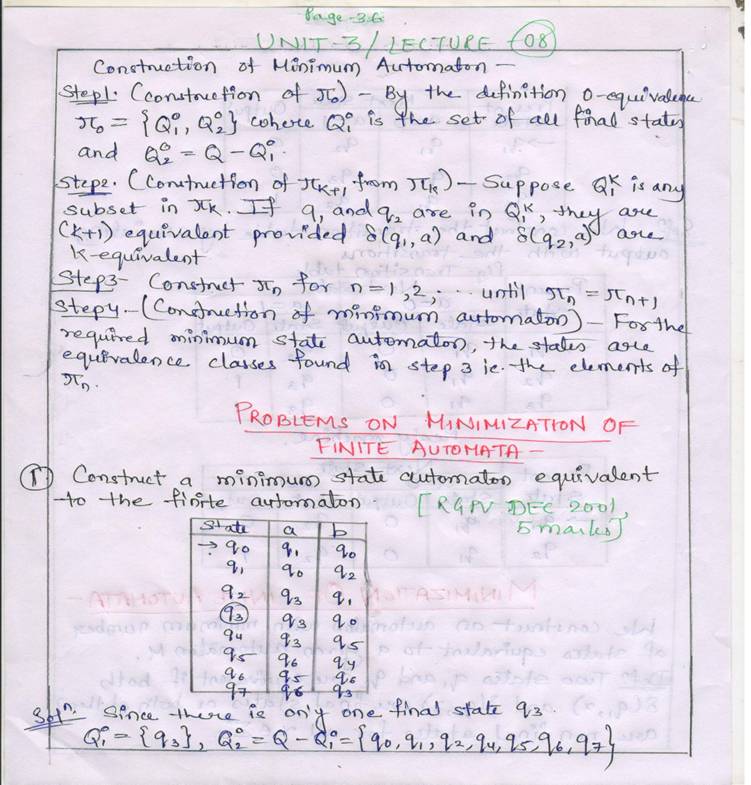 Page-36
UNIT-3/LECTURE 08
Construction of Minimum Automaton —
Step1. (Construction of π₀) — By the definition 0-equivalence
π₀ = {Q₁⁰, Q₂⁰} where Q₁⁰ is the set of all final states
and Q₂⁰ = Q - Q₁⁰.
Step2. (Construction of πₖ₊₁ from πₖ) — Suppose Q₁ᴷ is any
subset in πₖ. If q₁ and q₂ are in Q₁ᴷ, they are
(K+1) equivalent provided δ(q₁, a) and δ(q₂, a) are
K-equivalent
Step3- Construct πₙ for n = 1, 2, .... until πₙ = πₙ₊₁
Step4.-(Construction of minimum automaton) — For the
required minimum state automaton, the states are
equivalence classes found in step 3 ie. the elements of
πₙ.
PROBLEMS ON MINIMIZATION OF
FINITE AUTOMATA —
① Construct a minimum state automaton equivalent
to the finite automaton [RGPV DEC 2001,
5 marks]
State a b
→ q₀ q₁ q₀
q₁ q₀ q₂
q₂ q₃ q₁
q₃ q₃ q₀
q₄ q₃ q₅
q₅ q₆ q₄
q₆ q₅ q₆
q₇ q₆ q₃
Solⁿ. Since there is only one final state q₃.
Q₁⁰ = {q₃}, Q₂⁰ = Q - Q₁⁰ = {q₀, q₁, q₂, q₄, q₅, q₆, q₇}